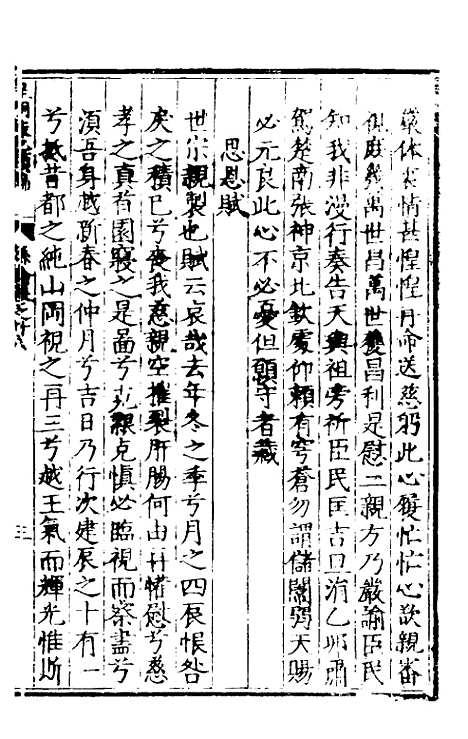 籲休戈情甚惶惶丹命送慈躬此心履忙忙心欲親審
俱庭幾萬世昌萬世雙昌利是慰二親方乃嚴諭臣民
知我非漫行奏告天與祖旁祈臣民匡吉旦涓乙卯肅
駕楚南張神京北欽處仰賴有穹蒼勿謂儲闕弼天賜
必元良此心不必憂但願守者藏
思恩賦
世宗親製也賦云哀哉去年冬之季兮月之四辰恨咎
戾之積已兮喪我慈親空摧裂肝腸何由再睹慰兮慈
孝之真有園寢之是啚兮克縣克慎必臨視而容盡兮
須吾身越新春之仲月兮吉日乃行次建辰之十有一
兮抵昔都之純山岡視之再三兮越王氣而輝光惟斯